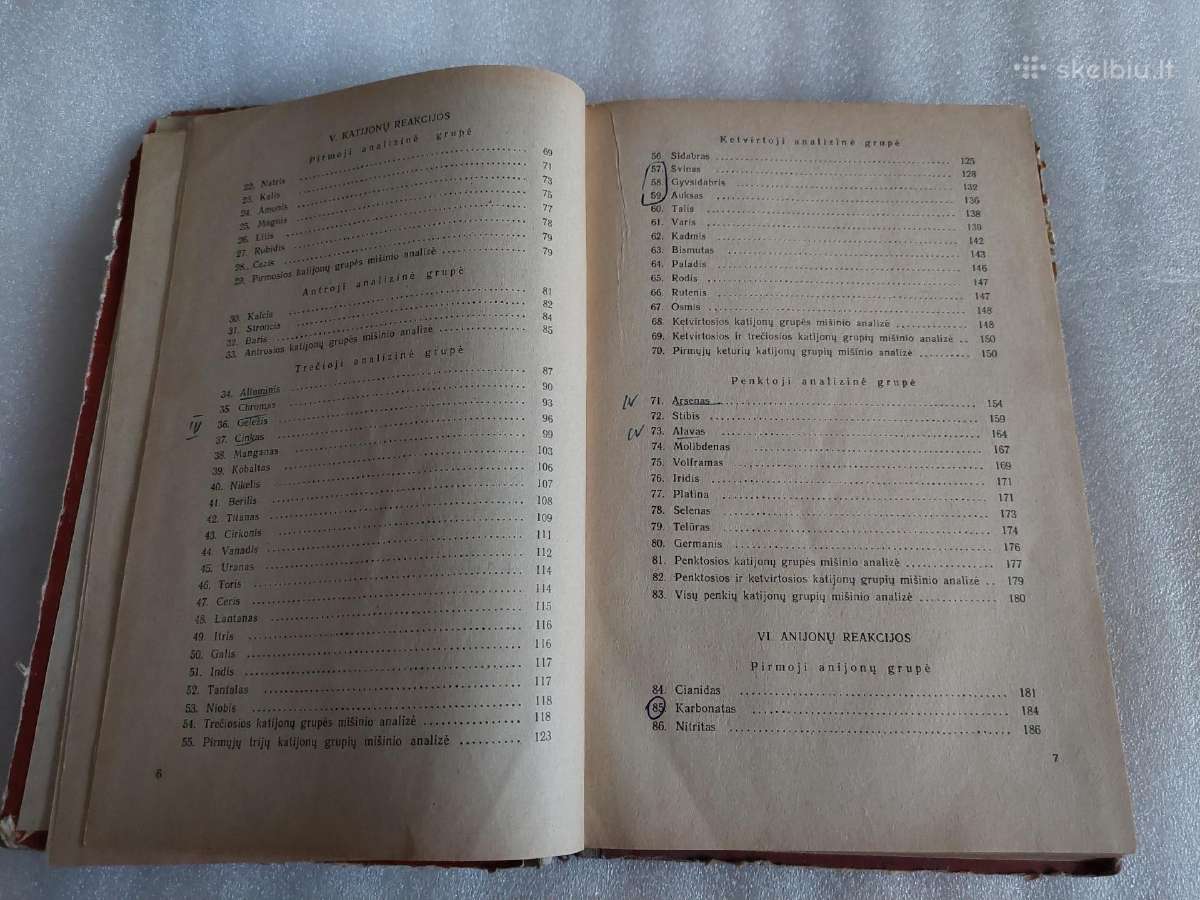 skelbiu.lt
V. KATIJONŲ REAKCIJOS
Pirmoji analizinė grupė
22. Natris 69
23. Kalis 71
24. Amonis 73
25. Magnis 75
26. Litis 77
27. Rubidis 78
28. Cezis 79
29. Pirmosios katijonų grupės mišinio analizė 79
Antroji analizinė grupė
30. Kalcis 81
31. Stroncis 82
32. Baris 84
33. Antrosios katijonų grupės mišinio analizė 85
Trečioji analizinė grupė
34. Aliuminis 87
35. Chromas 90
III 36. Geležis 93
37. Cinkas 96
38. Manganas 99
39. Kobaltas 103
40. Nikelis 106
41. Berilis 107
42. Titanas 108
43. Cirkonis 109
44. Vanadis 111
45. Uranas 112
46. Toris 114
47. Ceris 114
48. Lantanas 115
49. Itris 116
50. Galis 116
51. Indis 117
52. Tantalas 117
53. Niobis 118
54. Trečiosios katijonų grupės mišinio analizė 118
55. Pirmųjų trijų katijonų grupių mišinio analizė 123
6
Ketvirtoji analizinė grupė
56. Sidabras 125
57. Švinas 128
58. Gyvsidabris 132
59. Auksas 136
60. Talis 138
61. Varis 139
62. Kadmis 142
63. Bismutas 143
64. Paladis 146
65. Rodis 147
66. Rutenis 147
67. Osmis 148
68. Ketvirtosios katijonų grupės mišinio analizė 148
69. Ketvirtosios ir trečiosios katijonų grupių mišinio analizė 150
70. Pirmųjų keturių katijonų grupių mišinio analizė 150
Penktoji analizinė grupė
IV 71. Arsenas 154
72. Stibis 159
IV 73. Alavas 164
74. Molibdenas 167
75. Volframas 169
76. Iridis 171
77. Platina 171
78. Selenas 173
79. Telūras 174
80. Germanis 176
81. Penktosios katijonų grupės mišinio analizė 177
82. Penktosios ir ketvirtosios katijonų grupių mišinio analizė 179
83. Visų penkių katijonų grupių mišinio analizė 180
VI. ANIJONŲ REAKCIJOS
Pirmoji anijonų grupė
84. Cianidas 181
85. Karbonatas 184
86. Nitritas 186
7